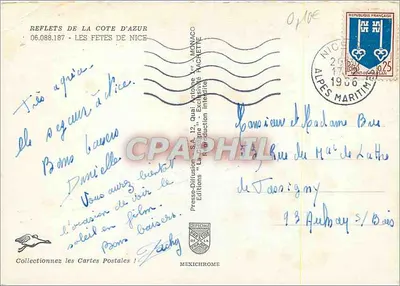 REFLETS DE LA COTE D'AZUR
06.088.187 - LES FETES DE NICE
0,10€
Très agréa-
ble séjour à Nice.
Bons baisers
Danielle
Vous aurez bientôt
l'occasion de voir le
soleil en film.
Bons baisers.
Collectionnez les Cartes Postales !
Presse-Diffusion - S.A. 12, Quai Antoine 1er - MONACO
Editions "La Cigogne" - Exclusivité HACHETTE
Reproduction interdite
MEXICHROME
CPAPHIL
REPUBLIQUE FRANÇAISE
0,25
NICE
1966
ALPES MARITIMES
Monsieur et Madame
Rue du Mal de Lattre
de Tassigny
93 Aulnay s/ Bois